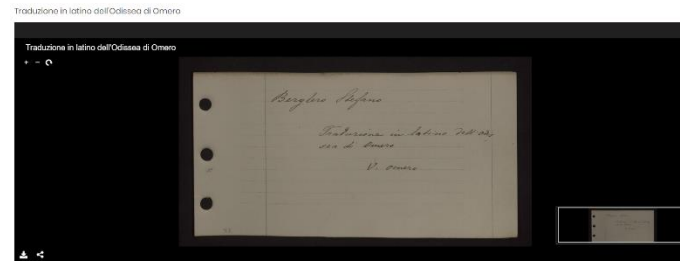 Traduzione in latino dell'Odissea di Omero
Traduzione in latino dell'Odissea di Omero
Berglero Stefano
Traduzione in latino dell'Odis,
sea di Omero
V. Omero